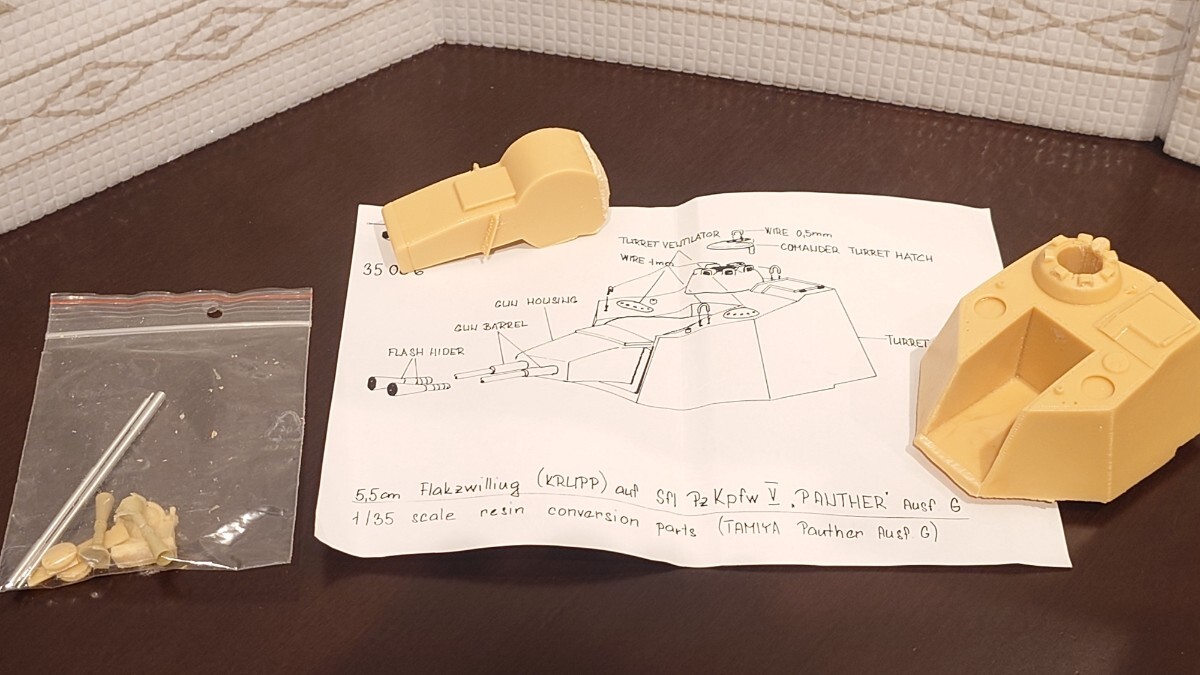 TURRET VENTILATOR
WIRE 0,5mm
COMANDER TURRET HATCH
WIRE 1mm
GUN HOUSING
GUN BARREL
FLASH HIDER
TURRET
5,5cm Flakzwilliug (KRUPP) auf Sfl PzKpfw V "PANTHER" Ausf G
1/35 scale resin conversion parts (TAMIYA Panther Ausf. G)